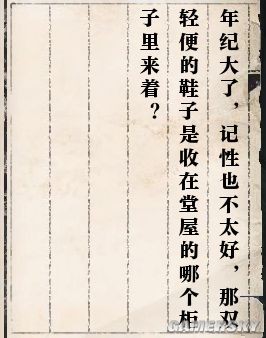 年纪大了，记性也不太好，那双
轻便的鞋子是收在堂屋的哪个柜
子里来着？
GAMERSKY